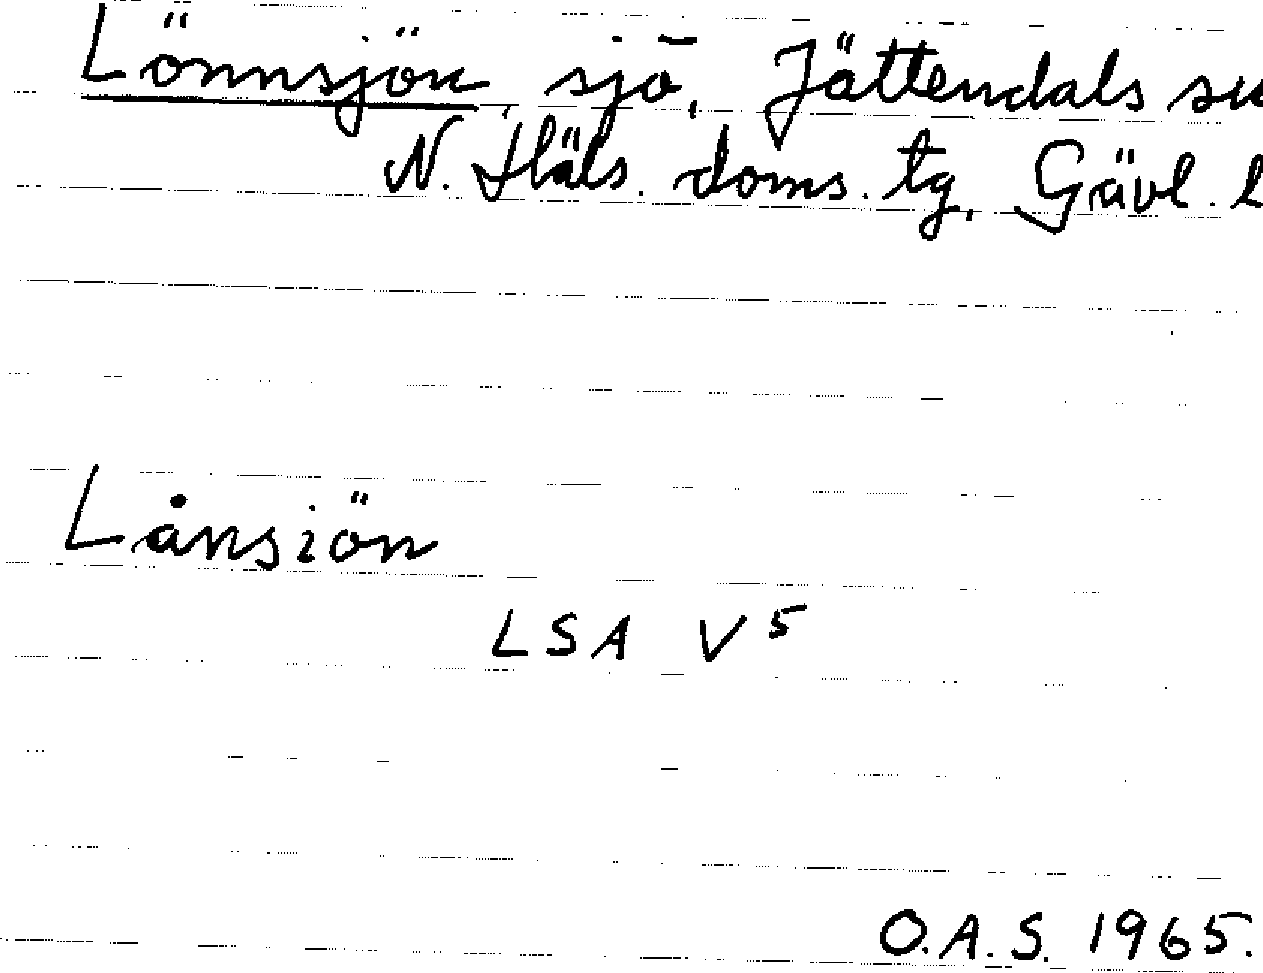 Lönnsjön, sjö, Jättendals su
N. Häls. doms. tg, Gävl. l
Lånsiön
LSA V5
O.A.S. 1965.